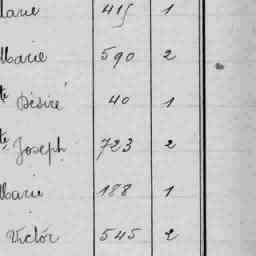 Marie 415 1
Marie 590 2
te Désiré 40 1
te Joseph 723 2
Marie 188 1
Victor 545 2